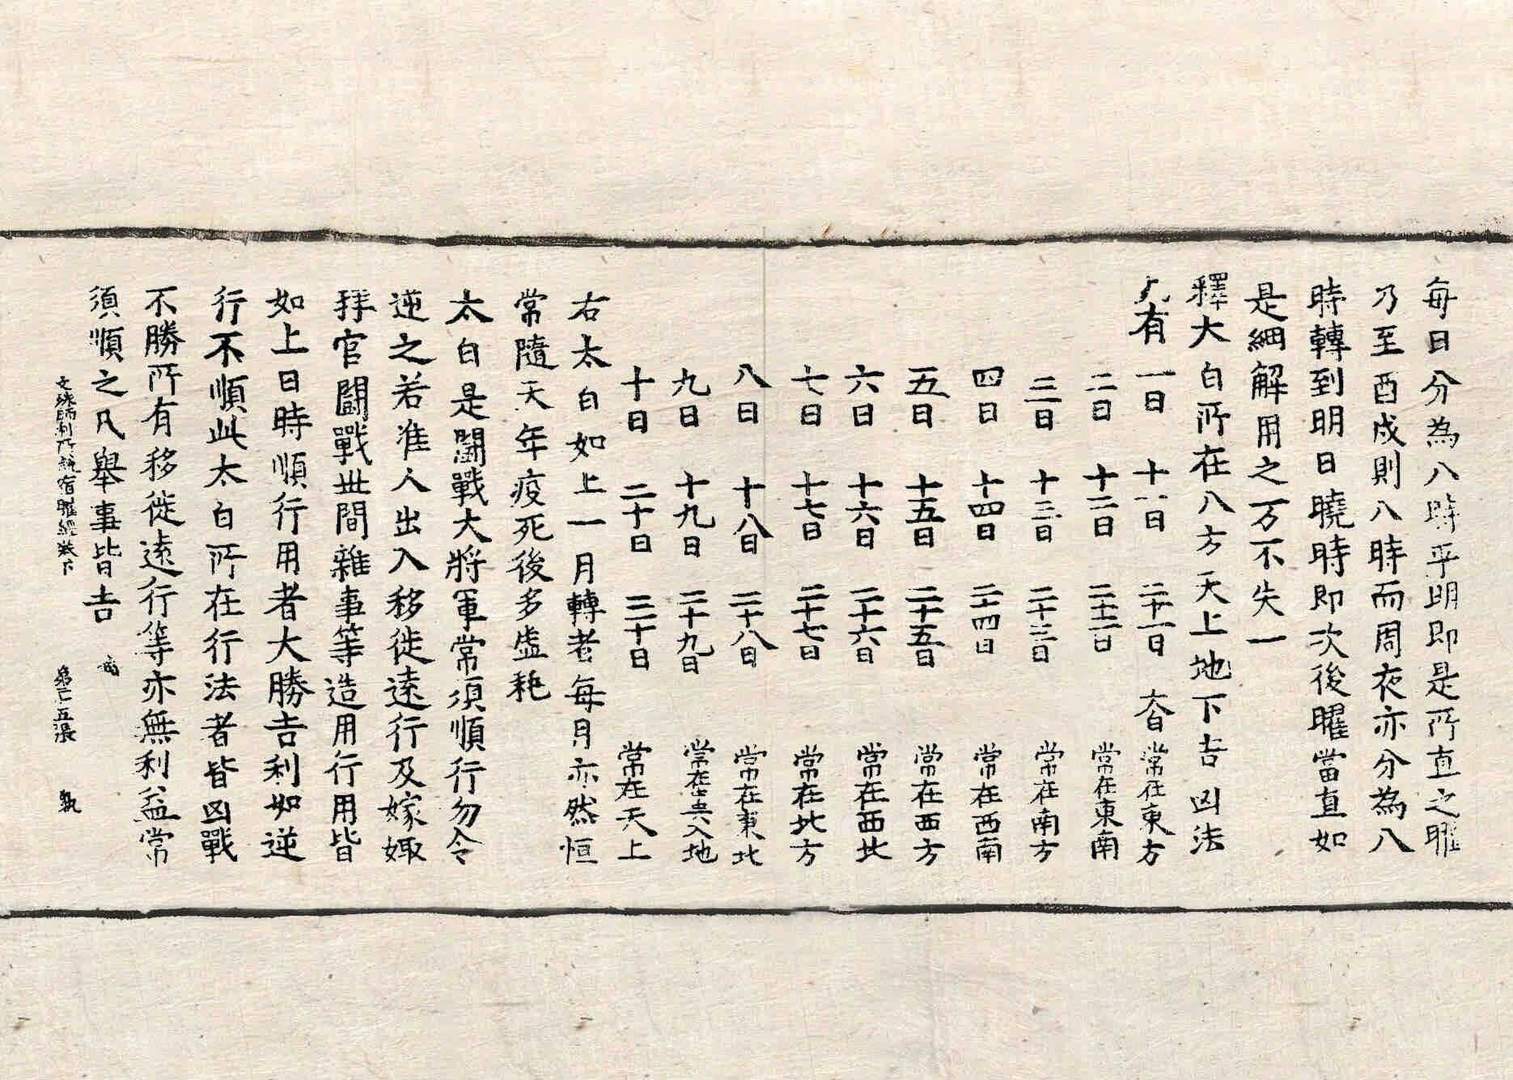 每日分為八時平明即是所直之曜
乃至酉戌則八時而周夜亦分為八
時轉到明日曉時即次後曜當直如
是細解用之万不失一
釋大白所在八方天上地下吉凶法
凡有一日 十一日 二十一日 太白常在東方
二日 十二日 二十二日 常在東南
三日 十三日 二十三日 常在南方
四日 十四日 二十四日 常在西南
五日 十五日 二十五日 常在西方
六日 十六日 二十六日 常在西北
七日 十七日 二十七日 常在北方
八日 十八日 二十八日 常在東北
九日 十九日 二十九日 常在入地
十日 二十日 三十日 常在天上
右太白如上一月轉者每月亦然恒
常隨天年疫死後多虛耗
太白是鬪戰大將軍常須順行勿令
逆之若准人出入移徙遠行及嫁娵
拝官鬪戰世間雜事等造用行用皆
如上日時順行用者大勝吉利如逆
行不順此太白所在行法者皆凶戰
不勝所有移徙遠行等亦無利益常
須順之凡舉事皆吉
文殊師利所說宿曜經卷下 第二五張